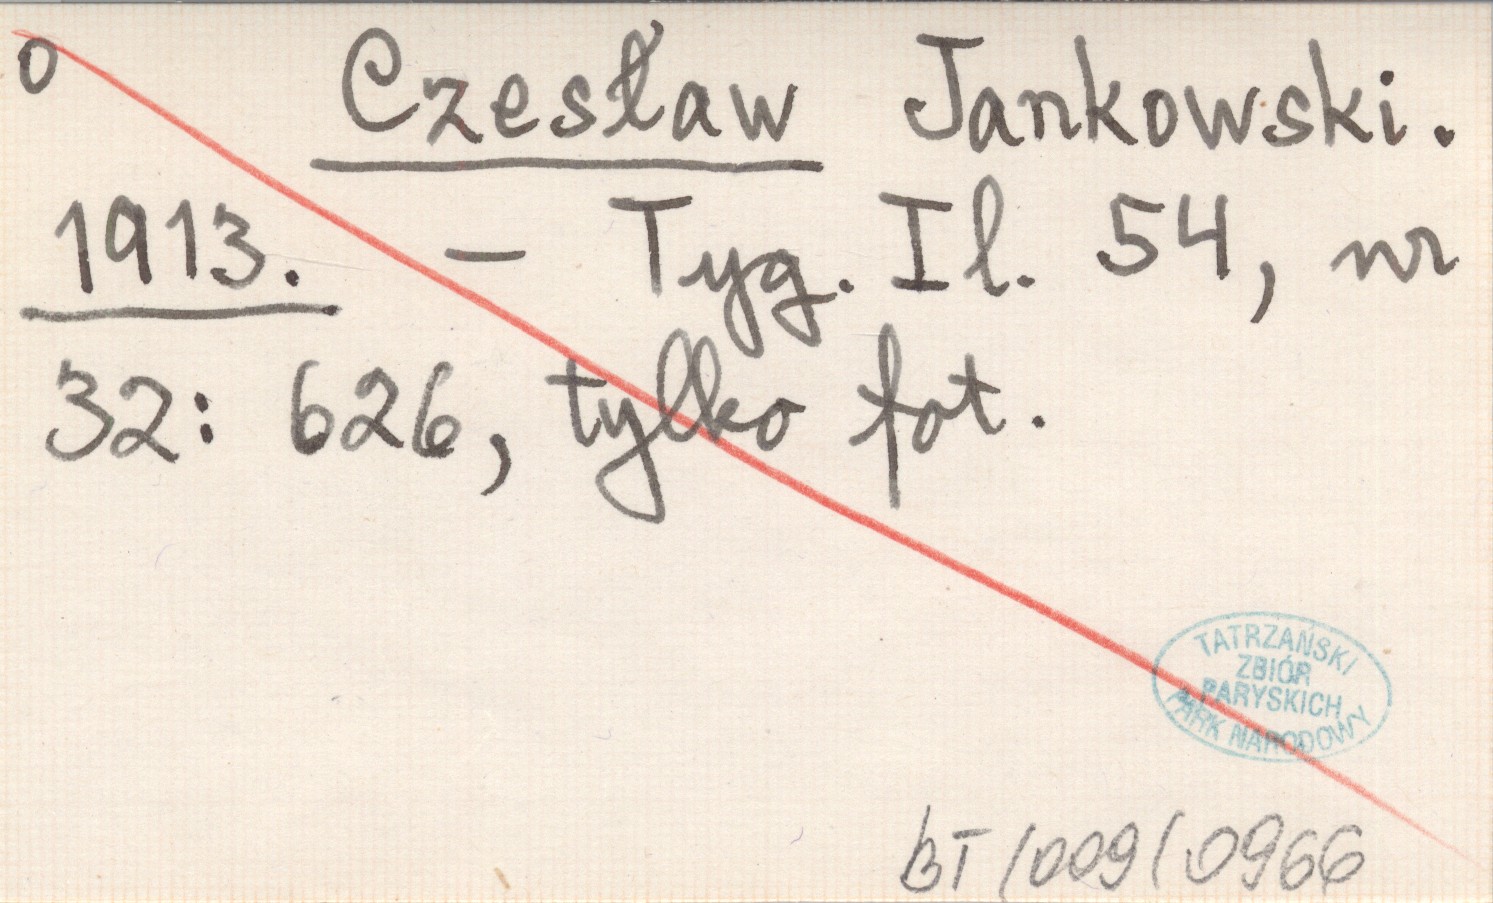 0
Czesław Jankowski.
1913. – Tyg. Il. 54, nr
32: 626, tylko fot.
TATRZAŃSKI
ZBIÓR
PARYSKICH
PARK NARODOWY
BT/009/0966